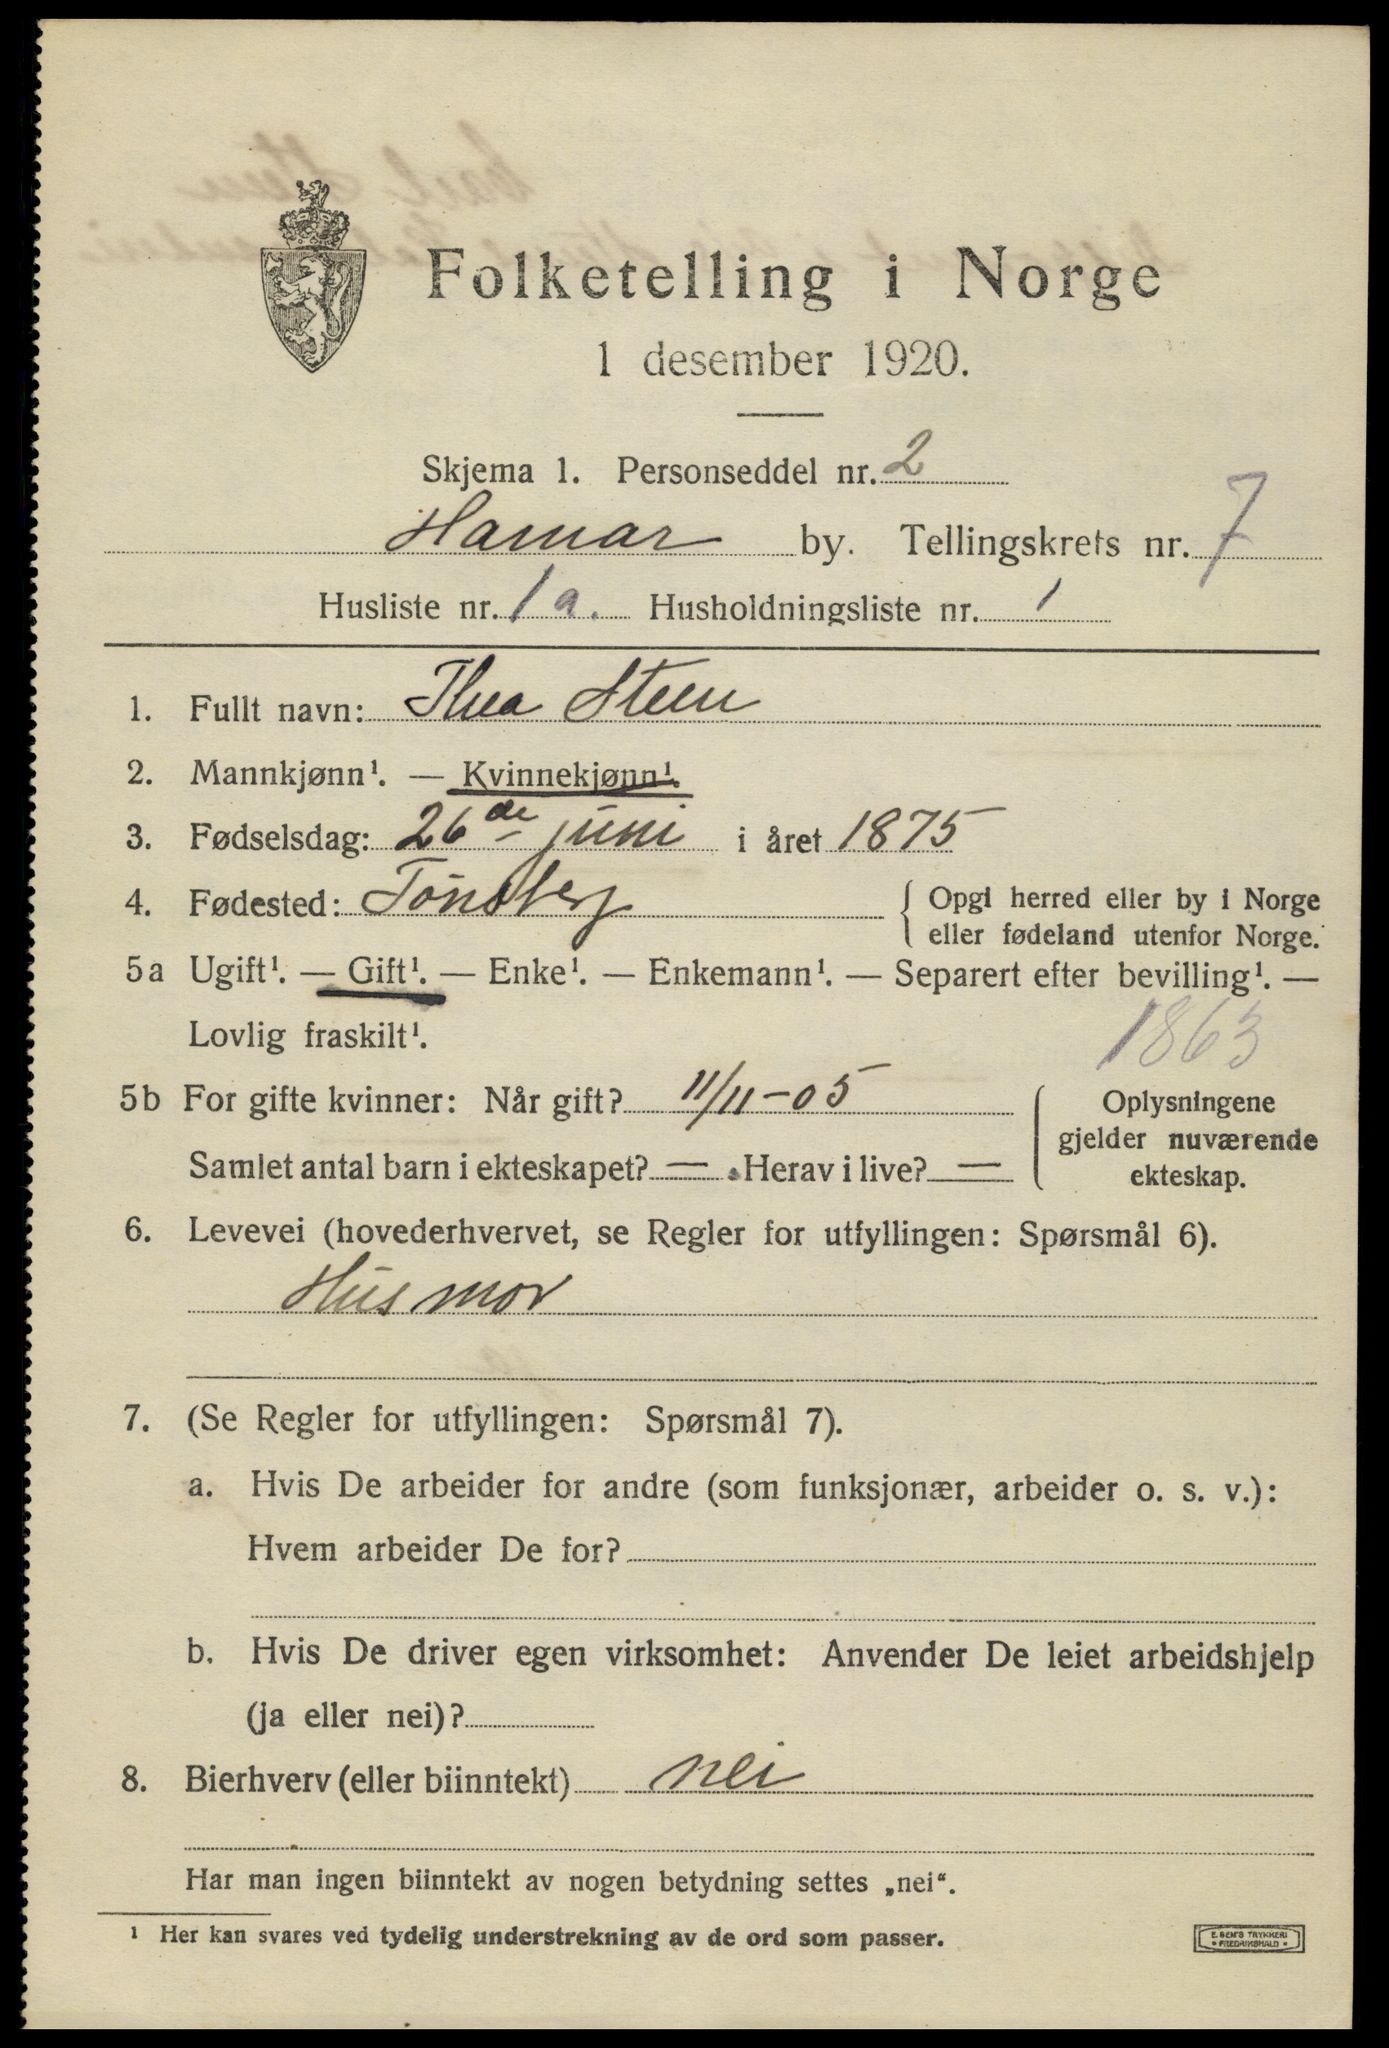 Folketelling i Norge
1 desember 1920.
Skjema 1. Personseddel nr. 2
Hamar by. Tellingskrets nr. 7
Husliste nr. 1 a. Husholdningsliste nr. 1
1. Fullt navn: Thea Steen
2. Mannkjønn¹. — Kvinnekjønn¹.
3. Fødselsdag: 26de juni i året 1875
4. Fødested: Tönsberg { Opgi herred eller by i Norge
eller fødeland utenfor Norge.
5a Ugift¹. — Gift¹. — Enke¹. — Enkemann¹. — Separert efter bevilling¹. —
Lovlig fraskilt¹.
1863
5b For gifte kvinner: Når gift? 11/11-05
Samlet antal barn i ekteskapet? — . Herav i live? —
Oplysningene
gjelder nuværende
ekteskap.
6. Levevei (hovederhvervet, se Regler for utfyllingen: Spørsmål 6).
Husmor
7. (Se Regler for utfyllingen: Spørsmål 7).
a. Hvis De arbeider for andre (som funksjonær, arbeider o. s. v.):
Hvem arbeider De for?
b. Hvis De driver egen virksomhet: Anvender De leiet arbeidshjelp
(ja eller nei)?
8. Bierhverv (eller biinntekt) nei
Har man ingen biinntekt av nogen betydning settes „nei“.
¹ Her kan svares ved tydelig understrekning av de ord som passer.
E. SEM'S TRYKKERI
• FREDRIKSHALD •